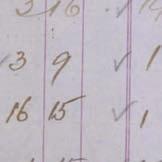 3 16 ✓ 19
✓3 9 ✓ 1
16 15 ✓ 1